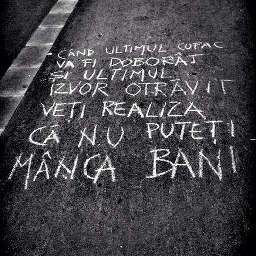 CÂND ULTIMUL COPAC
VA FI DOBORÂT
ŞI ULTIMUL
IZVOR OTRĂVIT
VEŢI REALIZA
CĂ NU PUTEŢI
MÂNCA BANI